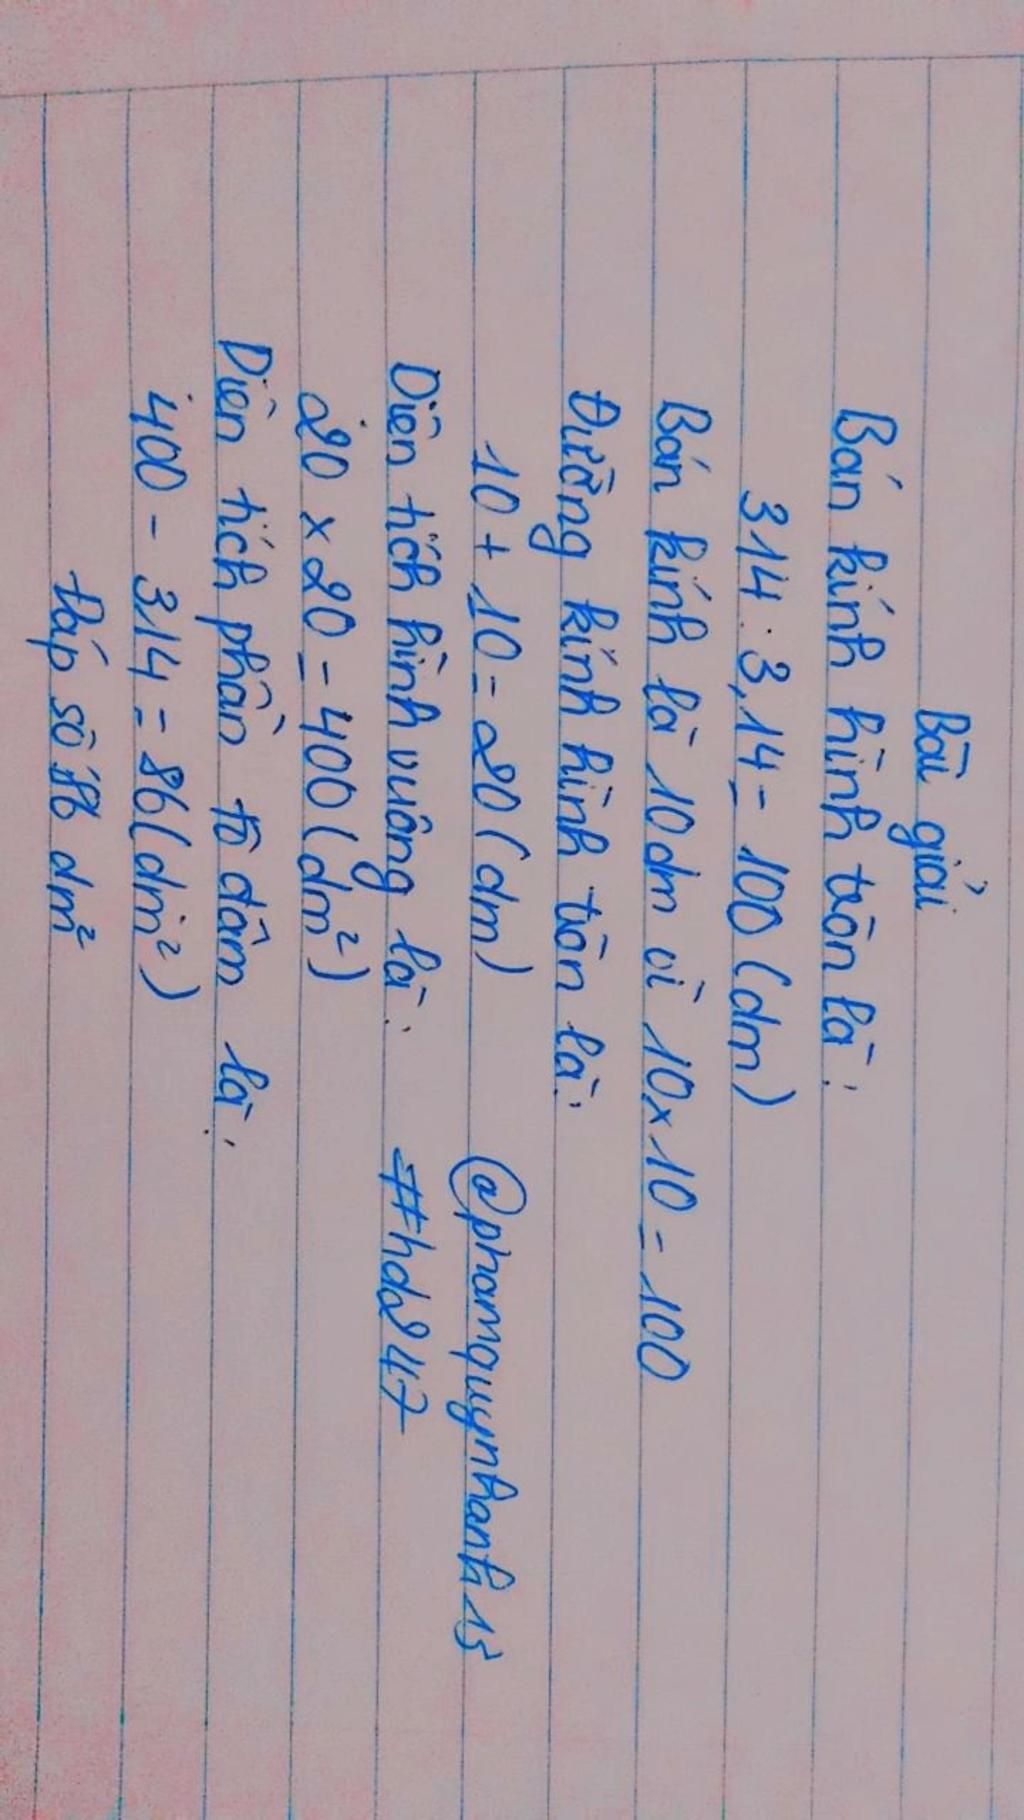 Bài giải
Bán kính hình tròn là:
314 : 3,14 = 100 (dm)
Bán kính là 10 dm vì 10 x 10 = 100
Đường kính hình tròn là:
10 + 10 = 20 (dm)
@phamquynhanh15
Diện tích hình vuông là:
#hda247
20 x 20 = 400 (dm²)
Diện tích phần tô đậm là:
400 - 314 = 86 (dm²)
Đáp số 86 dm²